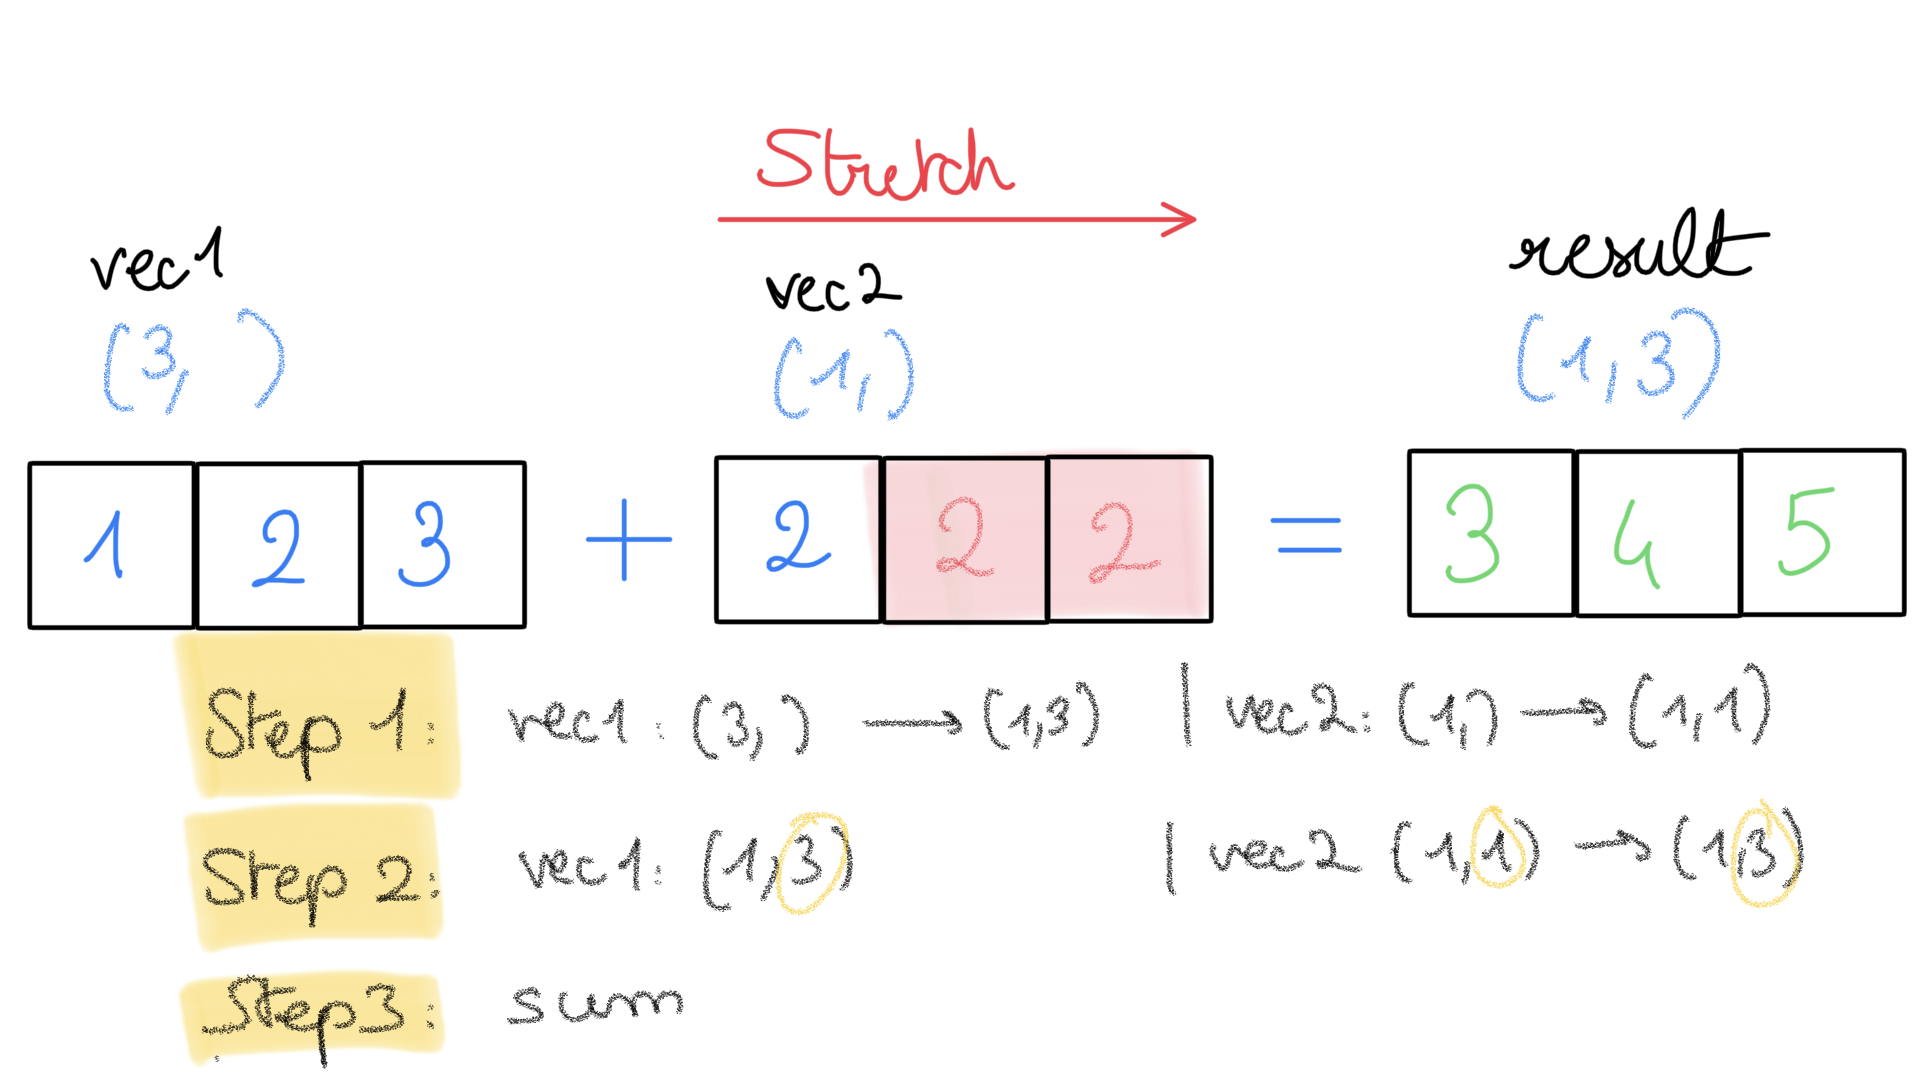 Stretch
vec1
vec2
result
(3, )
(1,)
(1,3)
1 2 3 + 2 2 2 = 3 4 5
Step 1: vec1: (3, ) → (1,3) | vec2: (1,) → (1,1)
Step 2: vec1: (1,3) | vec2 (1,1) → (1,3)
Step3: sum